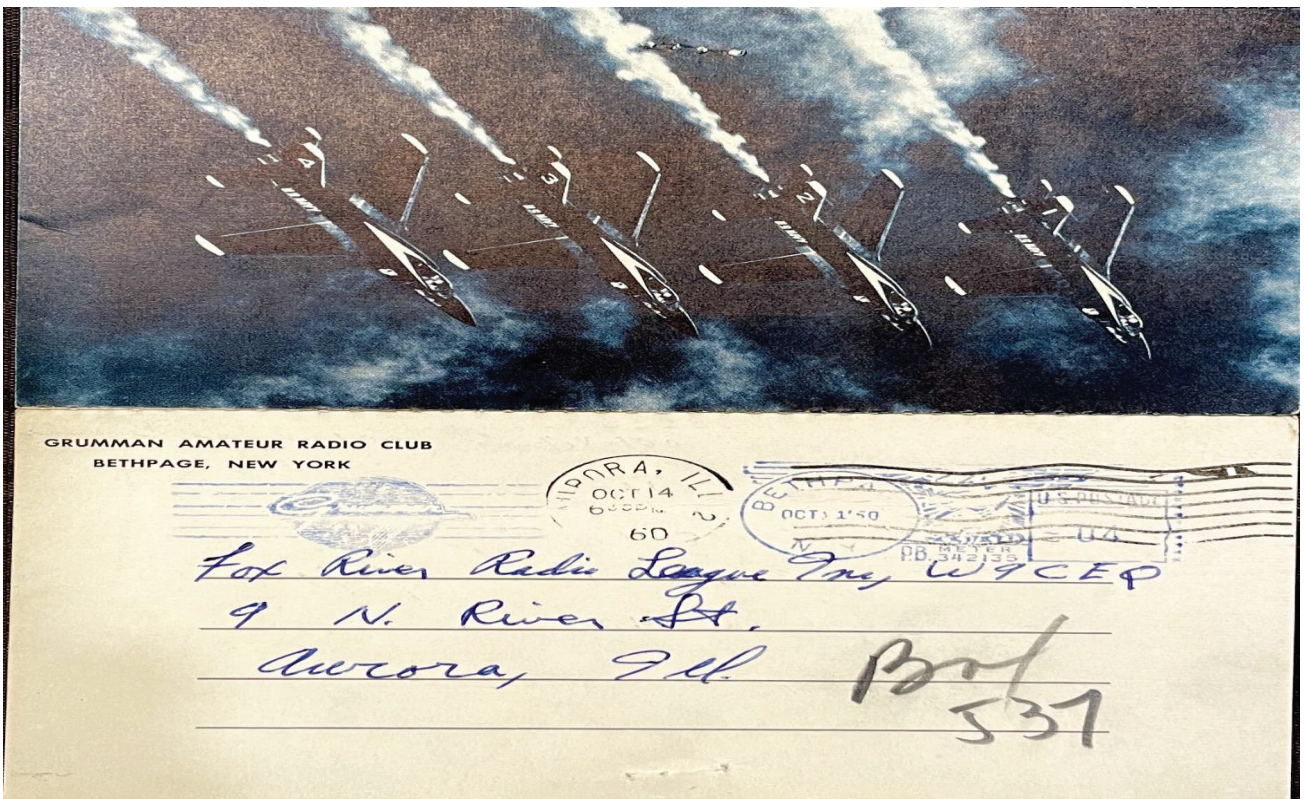 4 3 2 1
GRUMMAN AMATEUR RADIO CLUB
BETHPAGE, NEW YORK
OCT 14
60
OCT
N.Y.
U.S. POSTAGE
04
P.B. METER
342135
Fox River Radio League Inc, W9CEQ
9 N. River St.
Aurora, Ill.
Box
537